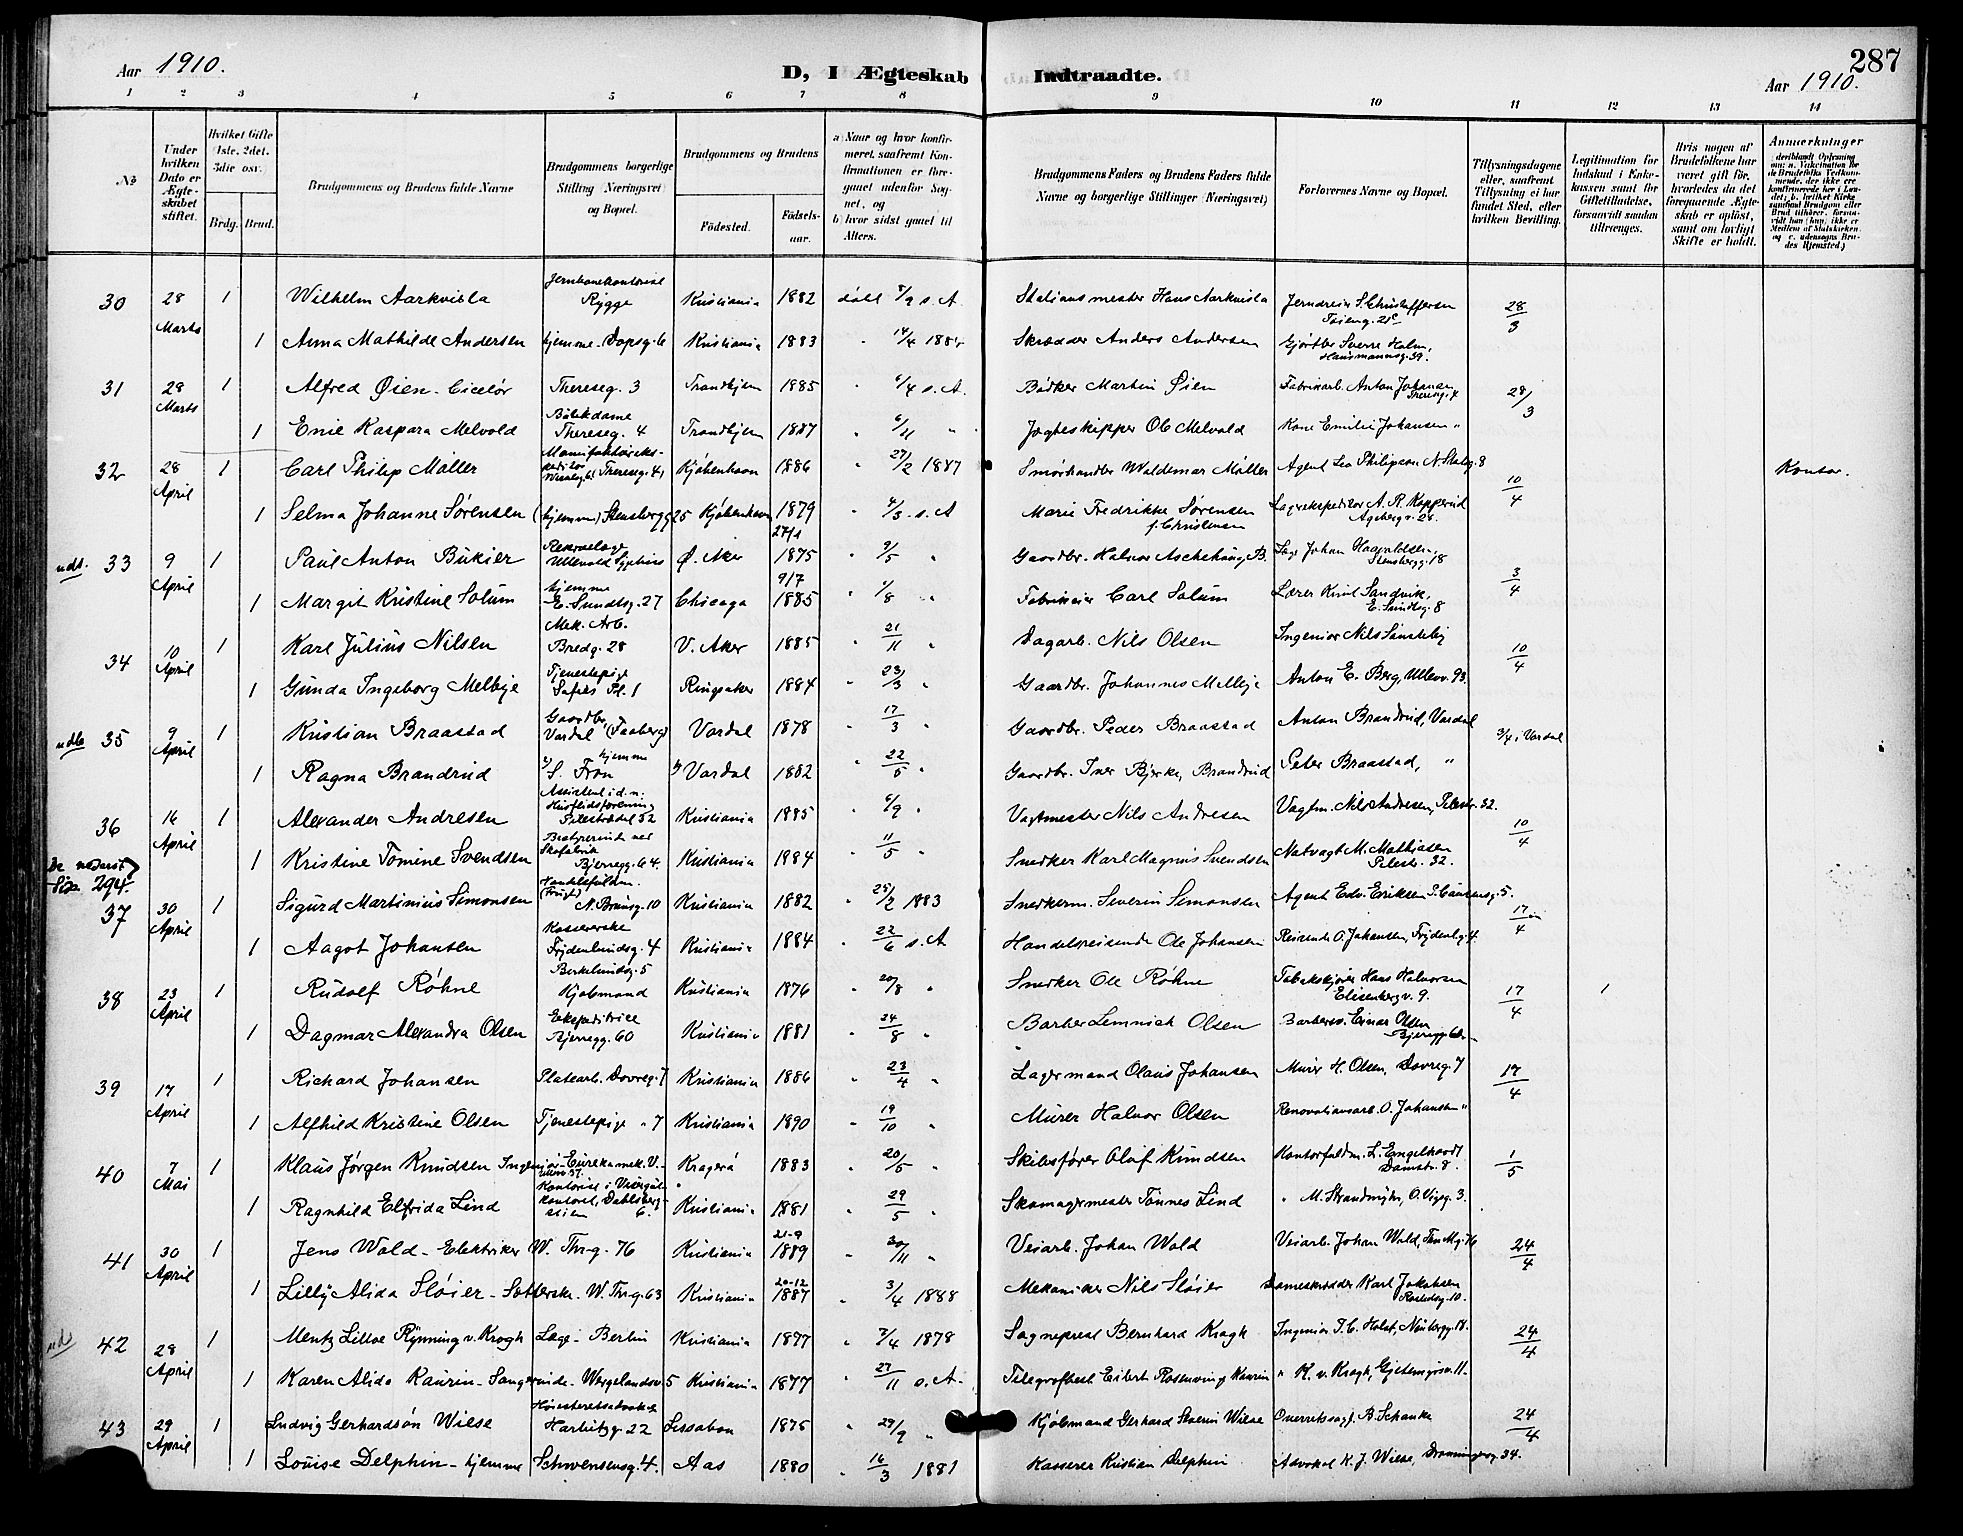 Aar 1910. D, I Ægteskab Indtraadte. Aar 1910. 287
1 2 3 4 5 6 7 8 9 10 11 12 13 14
No
Under hvilken Dato er Ægteskabet stiftet.
Hvilket Gifte (1ste, 2det, 3die osv.
Brdg. Brud.
Brudgommens og Brudens fulde Navne
Brudgommens borgerlige Stilling (Næringsvei) og Bopæl.
Brudgommens og Brudens
Fødested. Fødselsaar.
a) Naar og hvor konfirmeret, saafremt Konfirmationen er foregaaet udenfor Sognet, og b) hvor sidst gaaet til Alters.
Brudgommens Faders og Brudens Faders fulde Navne og borgerlige Stillinger (Næringsvei)
Forlovernes Navne og Bopæl.
Tillysningsdagene eller, saafremt Tillysning ei har fundet Sted, efter hvilken Bevilling.
Legitimation for Indskud i Enkekassen samt for Giftetilladelse, forsaavidt saadan tiltrænges.
Hvis nogen af Brudefolkene har været gift før, hvorledes da det foregaaende Ægteskab er opløst, samt om lovligt Skifte er holdt.
Anmærkninger
30 28 Marts 1 Wilhelm Aarkvisla Jernbanekontorist Rygge Kristiania 1882 døbt 8/9 s. A. Stationsmester Hans Aarkvisla 28/3
1 Anna Mathilde Andersen hjemme - Dopsg. 6 Kristiania 1883 " 14/4 1884 Skrædder Anders Andersen Sverre Holm, Hausmannsg. 39.
31 28 Marts 1 Alfred Øien - Ciselør Thereseg. 3 Trondhjem 1885 " 6/4 s. A. Bødker Martin Øien Fabrikarb. Anton Johansen, Thereseg. 4 28/3
1 Enie Kaspara Melvold Thereseg. 4 Trondhjem 1887 " 6/11 " Jægteskipper Ole Melvold Kone Emilie Johansen "
32 28 April 1 Carl Philip Møller Thereseg. 41 Kjøbenhavn 1886 " 27/2 1887 Smørhandler Waldemar Møller Agent Leo Philipson 10/4 Kontor.
1 Selma Johanne Sørensen (hjemme) Stensbergg 25 Kjøbenhavn 1879 " 4/3 s. A Marie Fredrikke Sørensen f. Christensen Lagerekspeditør A. R. Kopperud Ageberg v. 28.
udt. 33 9 April 1 Paul Anton Bukier Reservelæge Ullevold Sygehus Ø. Aker 27/1 1875 " 9/5 " Gaardbr. Halvor Aschehoug B. Johan Haavaldsen, Stensbergg. 18 3/4
1 Margit Kristine Solum hjemme E. Sundtsg. 27 Chicago 9/7 1885 " 1/8 " Carl Solum Lærer Knut Sandvik, E. Sundtsg. 8
34 10 April 1 Karl Julius Nilsen Mek. Arb. Bredg. 28 V. Aker 1885 21/11 " Dagarb. Nils Olsen Ingeniør Nils 10/4
1 Gunda Ingeborg Melbye Tjenestepige Sofies Pl. 1 Ringsaker 1884 " 23/3 " Gaardbr. Johannes Melbye Anton E. Berg, Ullevv. 93.
udb 35 9 April 1 Kristian Braastad Gaardbr. Vardal (Faaberg) Vardal 1878 " 17/3 " Gaardbr. Peder Braastad Anton Brandrud, Vardal 3/4 i Vardal
1 Ragna Brandrud hjemme S. Fron Vardal 1882 " 22/5 " Gaardbr. Iver Bjerke, Brandrud Peter Braastad, "
36 16 April 1 Alexander Andresen Assistent i d. n. Husflidsforening Pilestrædet 32 Kristiania 1885 " 6/9 " Vagtmester Nils Andresen Vagtm. Nils Andresen, Pilestr. 32. 10/4
1 Kristine Tomine Svendsen Skofabrik Bjerregg. 64. Kristiania 1984 " 11/5 " Snedker Karl Magnus Svendsen Natvagt M. Mathiasen Pilestr. 32.
Se nederst Side 294.
37 30 April 1 Sigurd Martinius Simonsen Handelsfuldm. (Frugt) N. Brunsg. 10 Kristiania 1882 " 25/2 1883 Snedkerm. Severin Simonsen Agent Edv. Eriksen 5. 17/4
1 Aagot Johansen Kassererske Frydenlundsg. 4 Kristiania 1884 " 22/6 s. A Handelsreisende Ole Johansen Reisende O. Johansen, Frydenlg. 4.
38 23 April 1 Rudolf Røhne Birkelundsg. 5 Kjøbmand Kristiania 1876 " 20/8 " Snedker Ole Røhne Hans Halvorsen Elisenberg v. 9. 17/4 1
1 Dagmar Alexandra Olsen Ekspeditrice Bjerregg. 60 Kristiania 1881 " 24/8 " Barber Lemnich Olsen Barbersv. Einar Olsen Bjerregg 60
39 17 April 1 Richard Johansen Platearb. Dovreg. 7 Kristiania 1886 " 23/4 " Lagermand Olaus Johansen Murer H. Olsen, Dovreg. 7 17/4
1 Alfhild Kristine Olsen Tjenestepige " 7 Kristiania 1890 " 19/10 " Murer Halvor Olsen Renovationsarb. O. Johansen "
40 7 Mai 1 Klaus Jørgen Knudsen Ingeniør - Eureka mek. V. Kragerø 1883 " 20/5 " Skibsfører Olaf Knudsen Kontorfuldm. L. Engelhardt Damstr. 8. 1/5
1 Ragnhild Elfrida Lind Kontorist i kontoret, Dahlsbergstien 6. Kristiania 1881 " 29/5 " Skomagermester Tønnes Lind " M. Strandmyhr, O. Vigg. 3.
41 30 April 1 Jens Wold - Elektriker W. Thr. g. 76 Kristiania 21-9 1889 " 20/11 " Veiarb. Johan Wold Veiarb. Johan Wold, 76 24/4
1 Lilly Alida Sløier - W. Thr. g. 63 Kristiania 20-12 1887 " 3/4 1888 Mekaniker Nils Sløier Dameskrædder Karl Jakobsen Rostedsg. 10.
42 28 April 1 Mentz Lilloe Rynning v. Krogh Læge - Berlin Kristiania 1877 " 7/4 1878 Sogneprest Bernhard Krogh Ingeniør J. C. Holst, 24/4
1 Karen Alida Kaurin - Sangerinde - Wergelandsv 5 Kristiania 1877 " 27/11 s. A. Telegrafbest Eilert Rosenving Kaurin " K. v. Krogh, 11.
43 29 April 1 Ludvig Gerhardsøn Wiese Høiesteretsadvokat Harbitzg. 22 Lissabon 1875 " 29/9 " Kjøbmand Gerhard Severin Wiese Overretssagf. B. Schanke 24/4
1 Louise Delphin - hjemme Schwensensg. 4. Aas 1880 " 16/3 1881 Kasserer Kristian Delphin Advokat K. J. Wiese, 34.